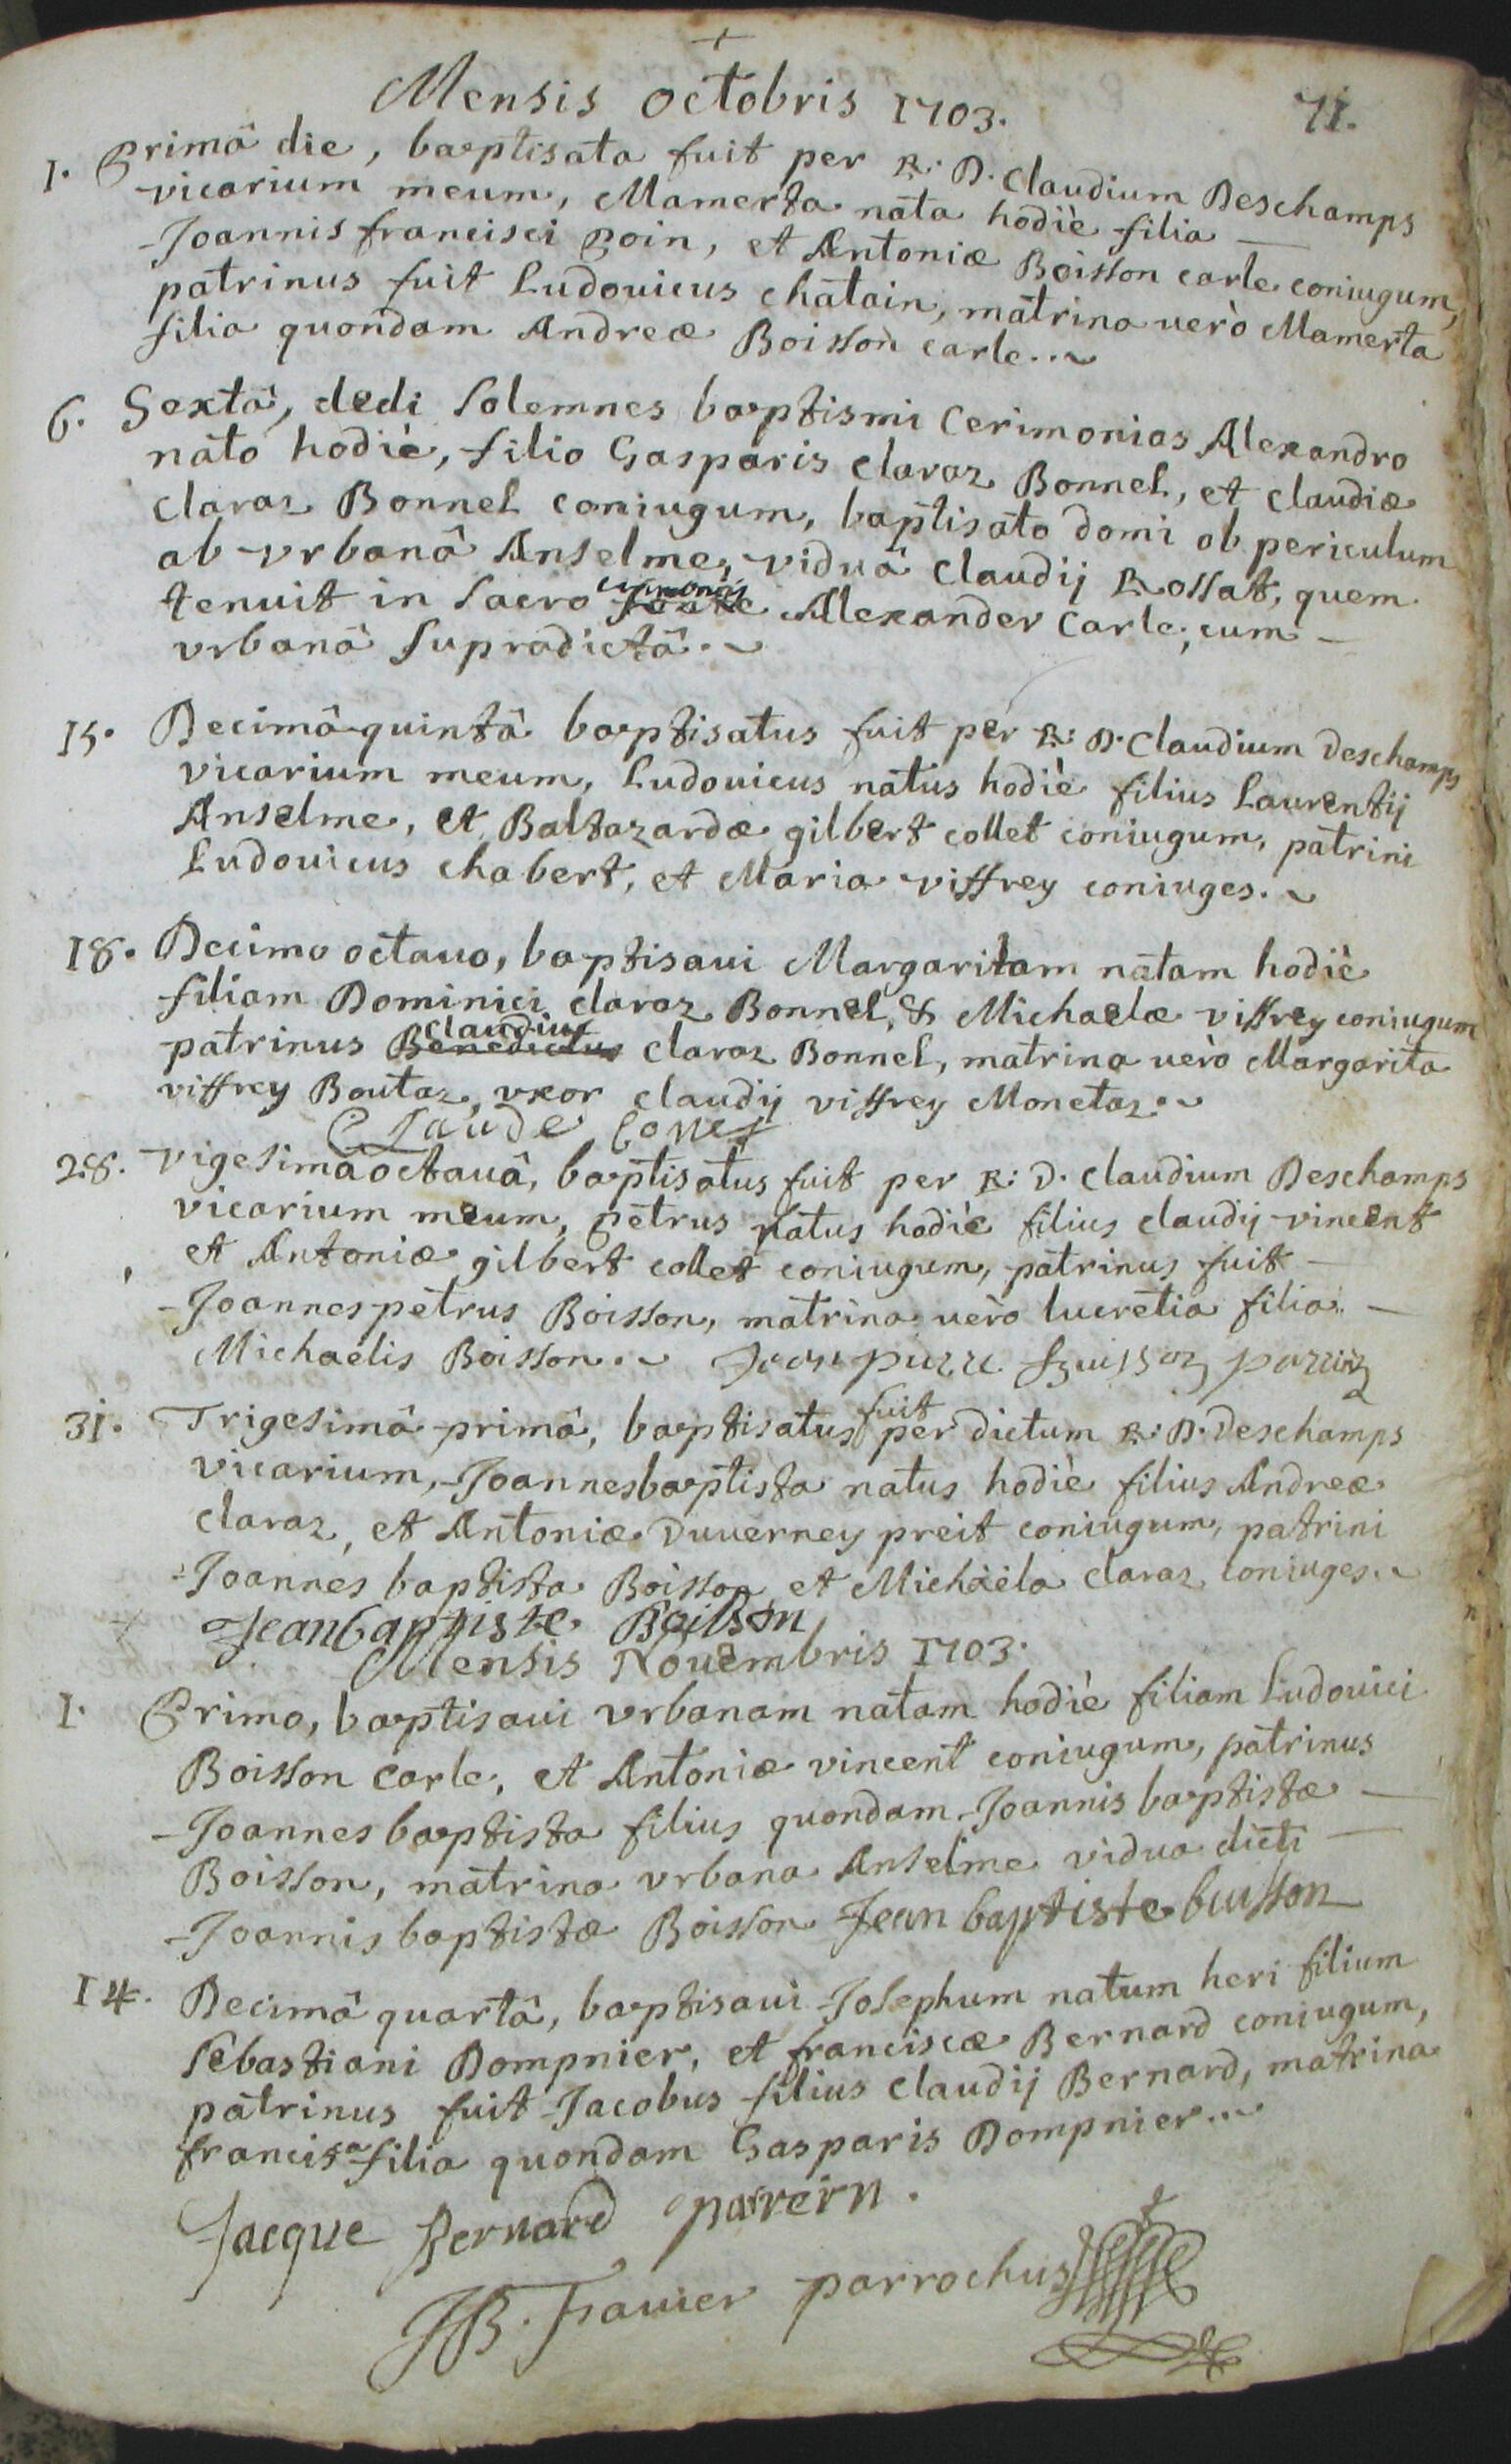 +
Mensis octobris 1703.
71.
1. Primâ die, baptisata fuit per R: D. Claudium Deschamps
vicarium meum, Mamerta nata hodiè filia —
Joannis francisci Poin, et Antoniæ Boisson carle coniugum,
patrinus fuit Ludouicus chatain, matrina uerò Mamerta
filia quondam Andreæ Boisson carle..~
6. Sextâ, dedi solemnes baptismi Cerimonias Alexandro
nato hodiè, filio Gasparis claraz Bonnel, et claudiæ
claraz Bonnel coniugum, baptisato domi ob periculum
ab vrbanâ Anselme, viduâ claudij Rossat, quem
tenuit in sacro Alexander Carle, cum —
vrbanâ supradictâ.~
15. Decimâ quintâ baptisatus fuit per R: D. Claudium Deschamps
vicarium meum, Ludouicus natus hodiè filius Laurentij
Anselme, et Baltazardæ gilbert collet coniugum, patrini
Ludouicus chabert, et Maria viffrey coniuges.~
18. Decimo octauo, baptisaui Margaritam natam hodiè
filiam Dominici claraz Bonnel, & Michaelæ viffrey coniugum
patrinus Benedictus claudius claraz Bonnel, matrina uerò Margarita
viffrey Boutaz, vxor claudij viffrey Monetaz.~
Claude bonnel
28. vigesimâ octauâ, baptisatus fuit per R: D. Claudium Deschamps
vicarium meum, petrus natus hodiè filius claudij vincent
et Antoniæ gilbert collet coniugum, patrinus fuit —
Joannes petrus Boisson, matrina uerò lucretia filia —
Michaëlis Boisson.~ Jean pierre
31. Trigesimâ primâ, baptisatus fuit per dictum R: D. Deschamps
vicarium, Joannesbaptista natus hodiè filius Andreæ
claraz, et Antoniæ Duuerney preit coniugum, patrini
Joannes baptista Boisson et Michaëla claraz coniuges.~
Jeanbaptiste Boisson
Mensis Nouembris 1703.
1. Primo, baptisaui vrbanam natam hodiè filiam Ludouici
Boisson carle, et Antoniæ vincent coniugum, patrinus
Joannes baptista filius quondam Joannis baptistæ —
Boisson, matrina vrbana Anselme vidua dicti —
Joannis baptistæ Boisson Jean baptiste buisson
14. Decimâ quartâ, baptisaui Josephum natum heri filium
sebastiani Dompnier, et franciscæ Bernard coniugum,
patrinus fuit Jacobus filius claudij Bernard, matrina
francisca filia quondam Gasparis Dompnier..~
Jacque Bernard parrein.
JB. Frauier parrochus